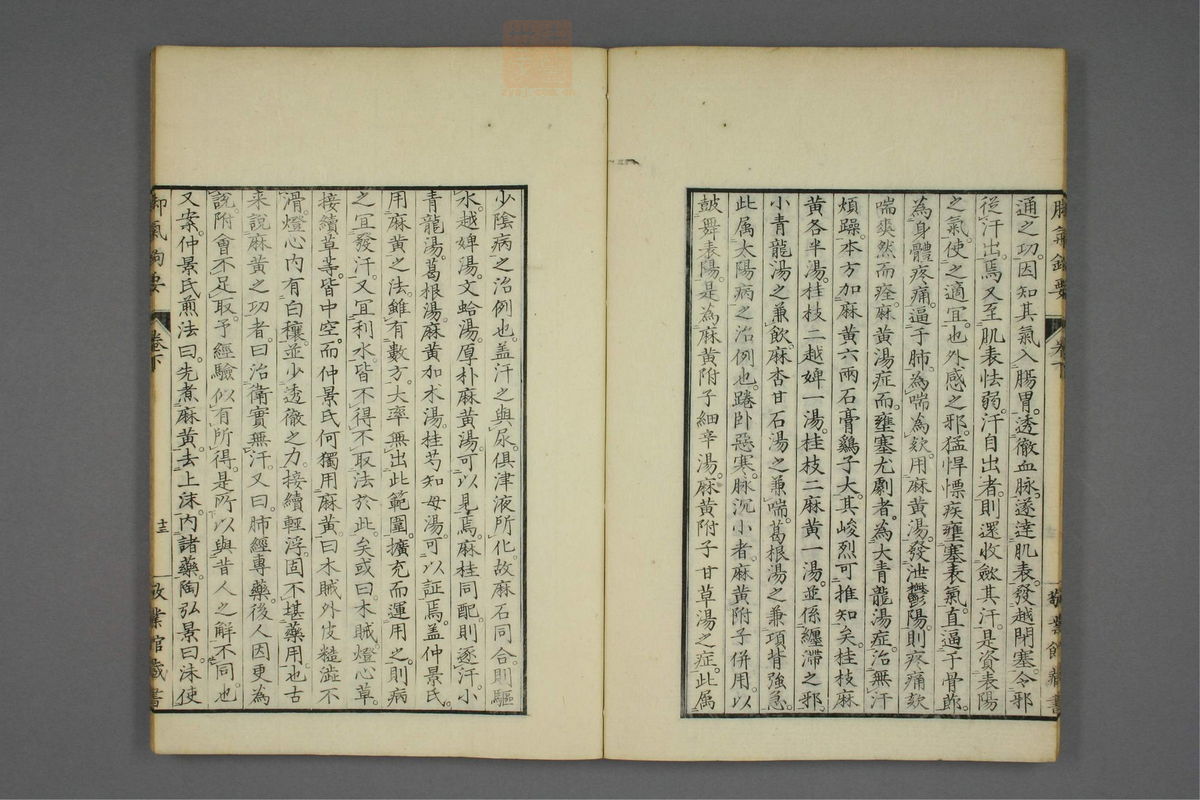 通之功。因知其氣入腸胃。透徹血脉。遂達肌表。發越閉塞。令邪
從汗出焉。又至肌表怯弱。汗自出者。則還收斂其汗。是資表陽
之氣。使之適宜也。外感之邪。猛悍慓疾。壅塞表氣。直逼于骨節。
為身體疼痛。逼于肺。為喘為欬。用麻黃湯。發泄鬱陽。則疼痛欬
喘爽然而痊。麻黃湯症。而壅塞尤劇者。為大青龍湯症。治無汗
煩躁。本方加麻黃六兩石膏鷄子大。其峻烈可推知矣。桂枝麻
黃各半湯。桂枝二越婢一湯。桂枝二麻黃一湯。並係纏滯之邪。
小青龍湯之兼飲。麻杏甘石湯之兼喘。葛根湯之兼項背強急。
此属太陽病之治例也。踡卧惡寒。脉沉小者。麻黃附子併用。以
鼓舞表陽。是為麻黃附子細辛湯。麻黃附子甘草湯之症。此属
少陰病之治例也。盖汗之與尿。俱津液所化。故麻石同合。則驅
水。越婢湯。文蛤湯。厚朴麻黃湯。可以見焉。麻桂同配。則逐汗。小
青龍湯。葛根湯。麻黃加朮湯。桂芍知母湯。可以証焉。盖仲景氏。
用麻黃之法。雖有數方。大率無出此範圍。擴充而運用之。則病
之宜發汗。又宜利水。皆不得不取法於此矣。或曰。木賊。燈心草。
接續草等。皆中空。而仲景氏何獨用麻黃。曰木賊外皮糙澁不
滑。燈心內有白穰。並少透徹之力。接續輕浮。固不堪藥用也。古
来說麻黃之功者。曰治衛實無汗。又曰。肺經專藥。後人因更為
說附會不足取。予經驗似有所得。是所以與昔人之解不同也
又案。仲景氏煎法曰。先煮麻黃。去上沫。內諸藥。陶弘景曰。沫使
卷下
十三
敬業館藏書